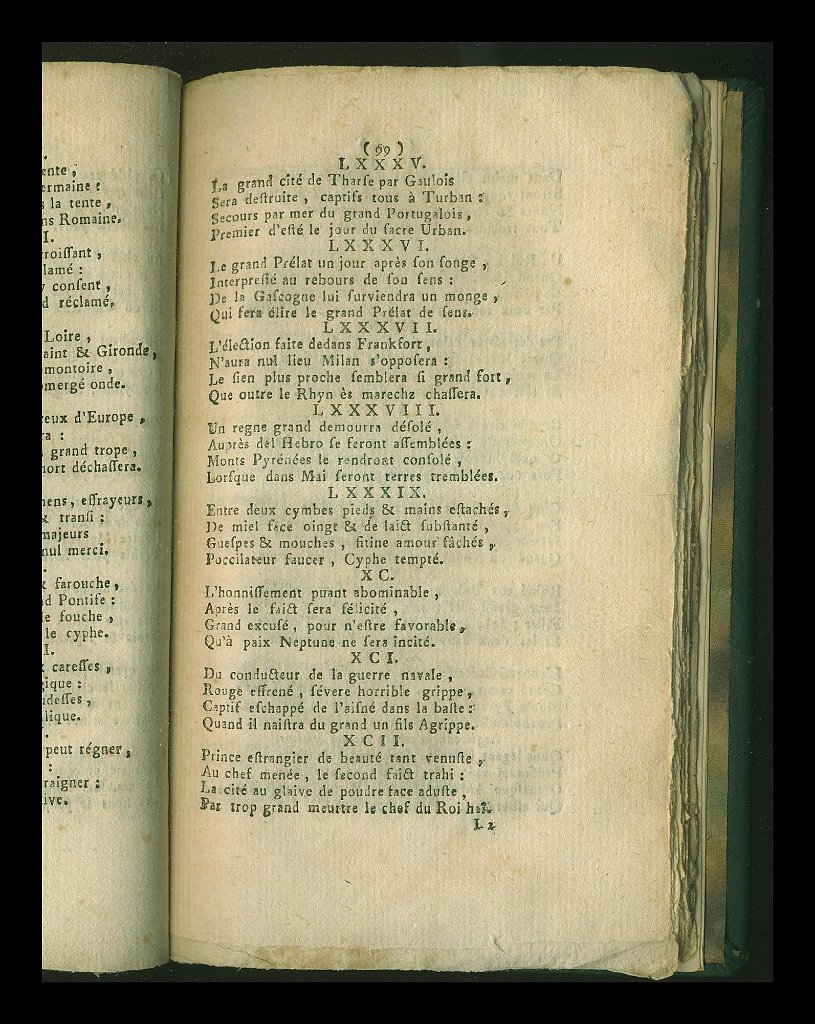 ente ,
ermaine :
s la tente ,
ns Romaine.
I.
croiſſant ,
lamé :
y conſent ,
d réclamé.
Loire ,
aint & Gironde ,
omontoire ,
bmergé onde.
ceux d'Europe ,
ra :
grand trope ,
mort déchaſſera.
mens , effrayeurs ,
& tranſi :
majeurs
nul merci.
& farouche ,
nd Pontife :
le fouche ,
le cyphe.
I.
careſſes ,
gique :
ideſſes ,
lique.
peut régner ,
:
raigner :
ive.
( 99 )
LXXXV.
La grand cité de Tharſe par Gaulois
Sera deſtruite , captifs tous à Turban :
Secours par mer du grand Portugalois ,
Premier d'eſté le jour du ſacre Urban.
LXXXVI.
Le grand Prélat un jour après ſon ſonge ,
Interpreſté au rebours de ſon ſens :
De la Gaſcogne lui ſurviendra un monge ,
Qui fera élire le grand Prélat de ſens.
LXXXVII.
L'élection faite dedans Frankfort ,
N'aura nul lieu Milan s'oppoſera :
Le ſien plus proche ſemblera ſi grand fort ,
Que outre le Rhyn ès marechz chaſſera.
LXXXVIII.
Un regne grand demourra déſolé ,
Auprès del Hebro ſe feront aſſemblées :
Monts Pyrénées le rendront conſolé ,
Lorſque dans Mai ſeront terres tremblées.
LXXXIX.
Entre deux cymbes pieds & mains eſtachés ,
De miel face oingt & de laict ſubſtanté ,
Gueſpes & mouches , fitine amour fâchés ,
Poccilateur faucer , Cyphe tempté.
XC.
L'honniſſement puant abominable ,
Après le faict ſera félicité ,
Grand excuſé , pour n'eſtre favorable ,
Qu'à paix Neptune ne ſera incité.
XCI.
Du conducteur de la guerre navale ,
Rouge effrené , ſévere horrible grippe ,
Captif eſchappé de l'aiſné dans la baſte :
Quand il naiſtra du grand un fils Agrippe.
XCII.
Prince eſtrangier de beauté tant venuſte ,
Au chef menée , le ſecond faict trahi :
La cité au glaive de poudre face aduſte ,
Par trop grand meurtre le chef du Roi haï.
L 2